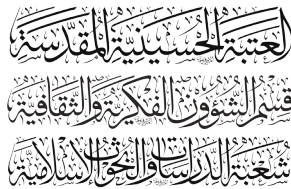 العتبة الحسينية المقدسة
قسم الشؤون الفكرية والثقافية
شعبة الدراسات والبحوث الإسلامية